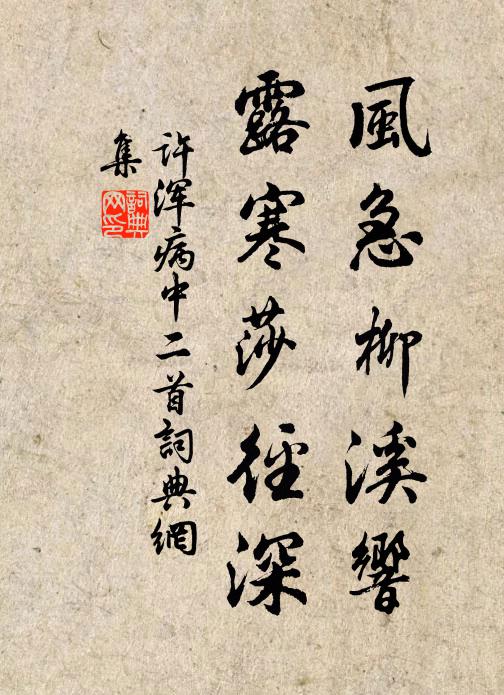 風急柳溪響
露寒莎徑深
許浑病中二首詞典網
集
詞典
网印